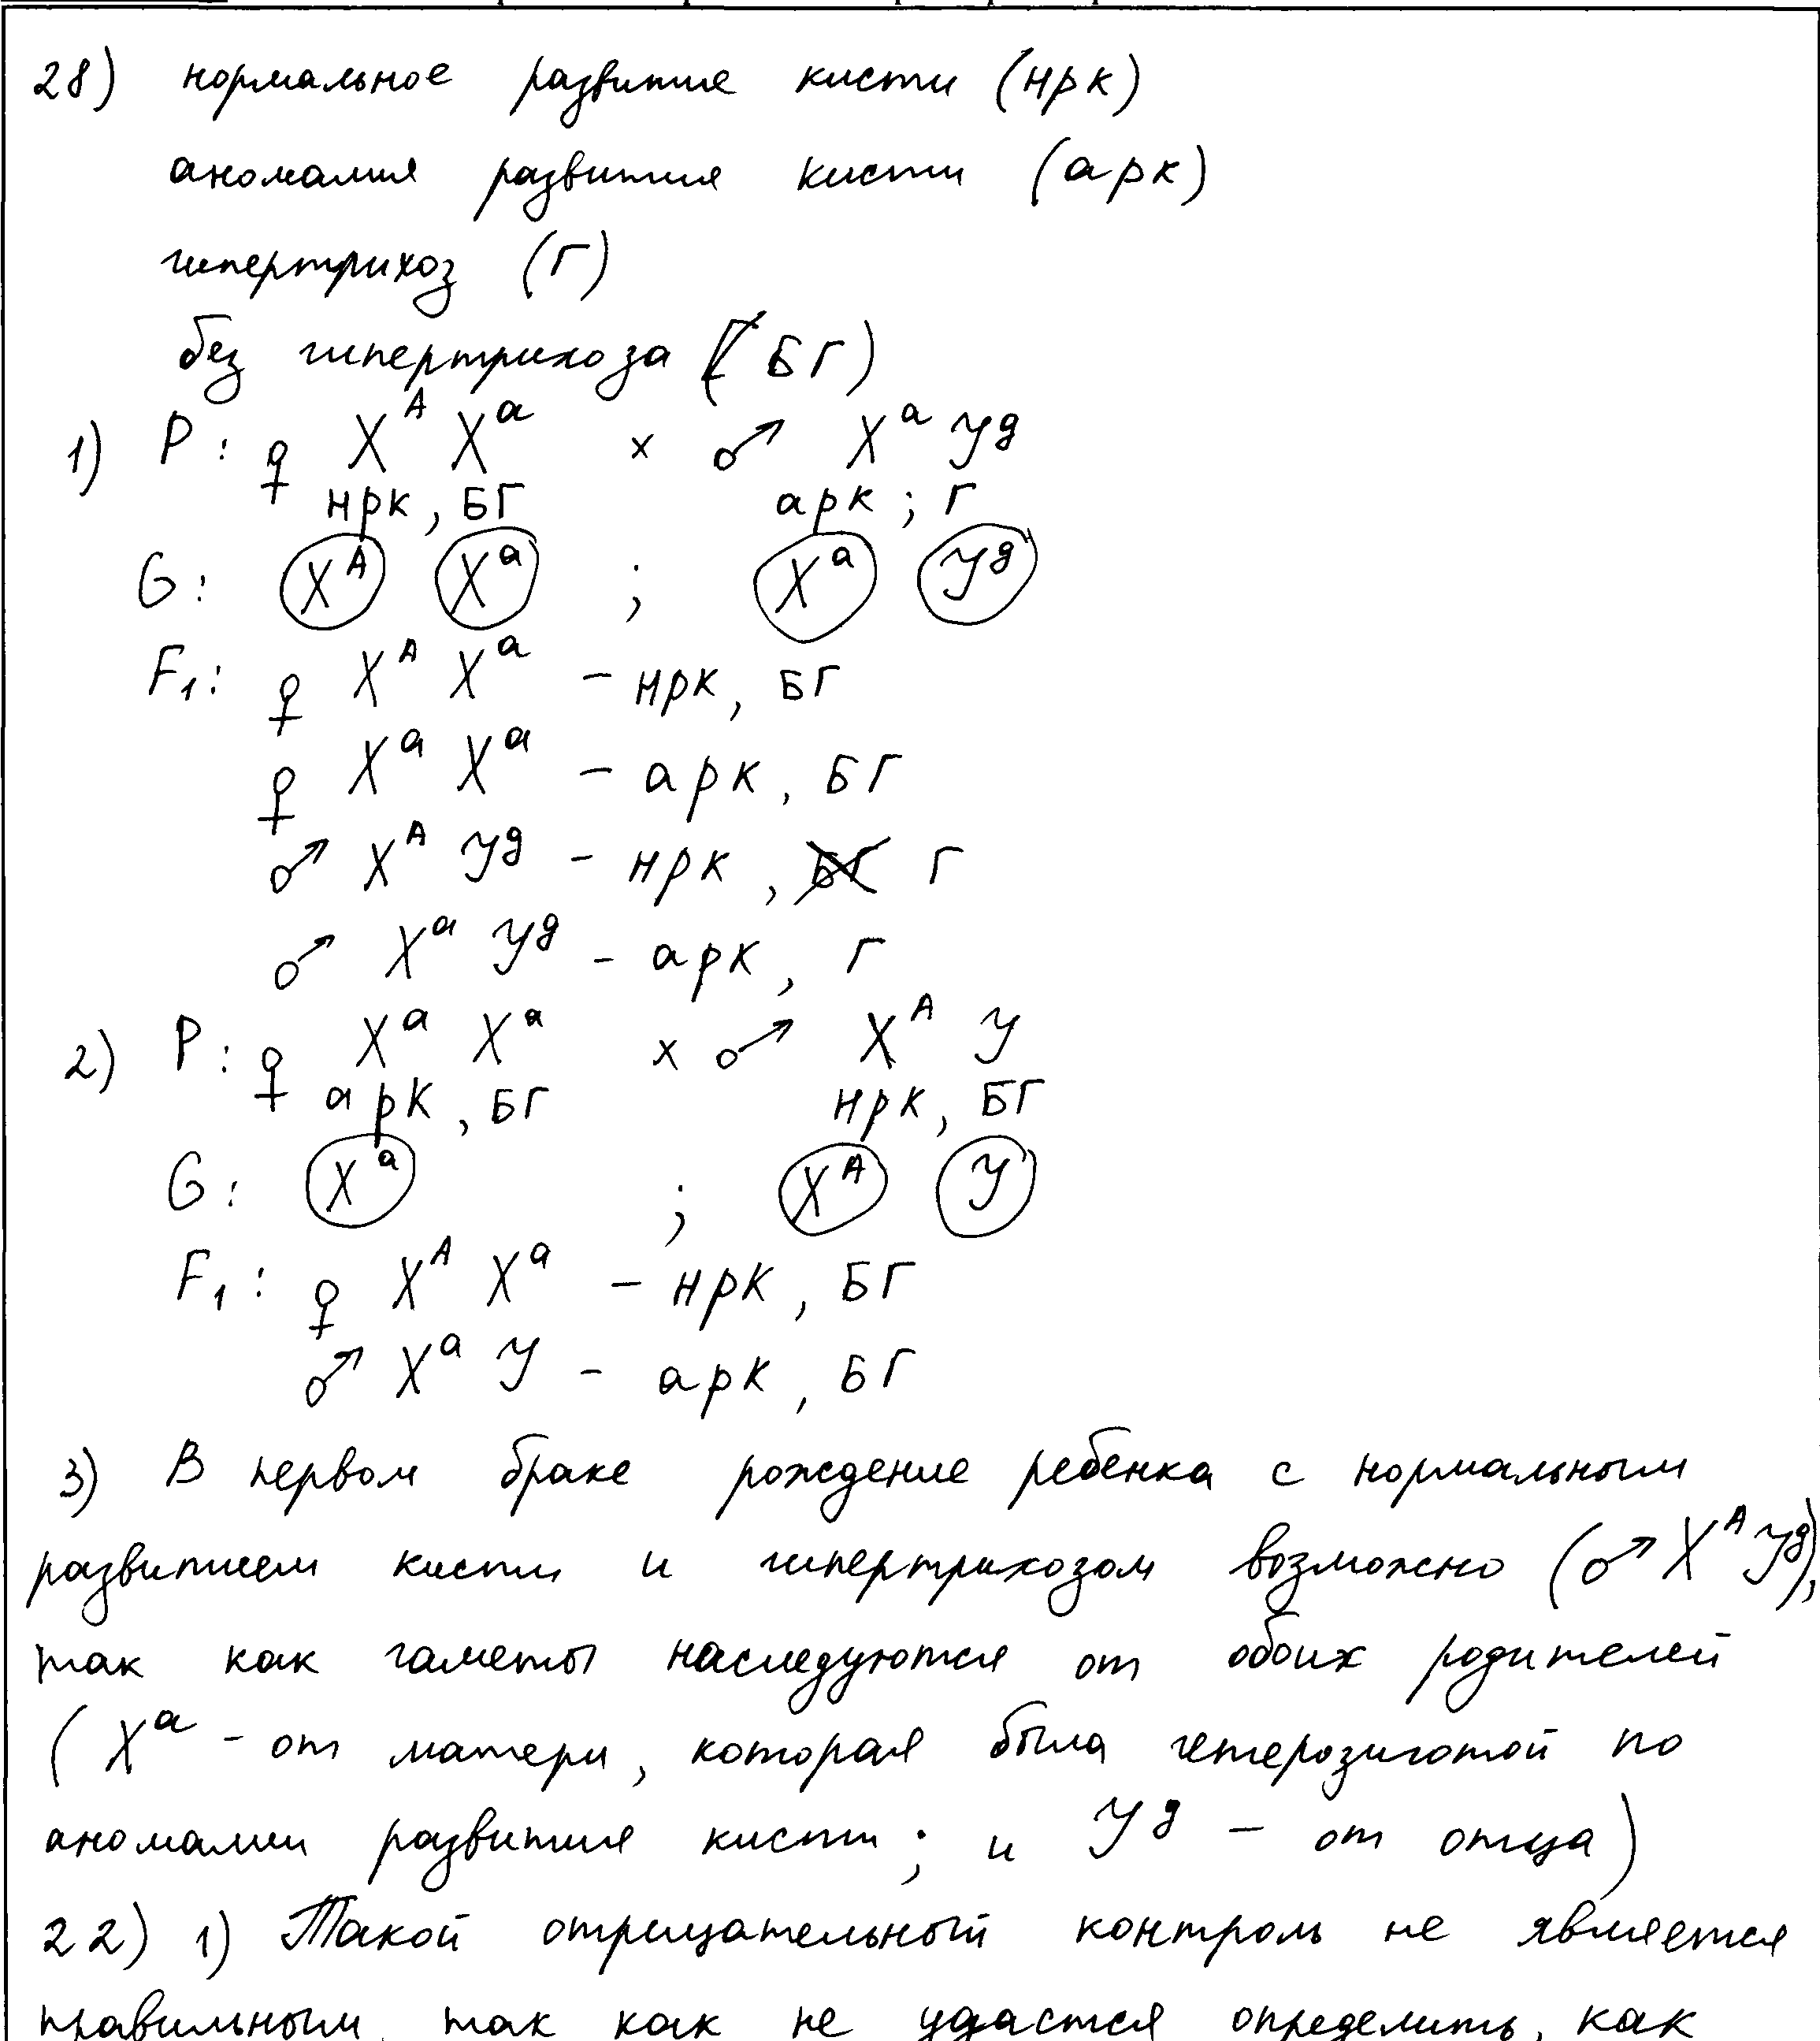 28) нормальное развитие кисти (нрк)
аномалия развития кисти (арк)
гипертрихоз (Г)
без гипертрихоза (БГ)
1) P: ♀ X^A X^a × ♂ X^a Y^g
нрк, БГ арк; Г
G: X^A X^a ; X^a Y^g
F₁: ♀ X^A X^a - нрк, БГ
♀ X^a X^a - арк, БГ
♂ X^A Y^g - нрк, БГ Г
♂ X^a Y^g - арк, Г
2) P: ♀ X^a X^a × ♂ X^A Y
арк, БГ нрк, БГ
G: X^a ; X^A Y
F₁: ♀ X^A X^a - нрк, БГ
♂ X^a Y - арк, БГ
3) В первом браке рождение ребенка с нормальным
развитием кисти и гипертрихозом возможно (♂ X^A Y^g),
так как гаметы наследуются от обоих родителей
(X^a - от матери, которая была гетерозиготой по
аномалии развития кисти; и Y^g - от отца)
22) 1) Такой отрицательный контроль не является
правильным, так как не удастся определить, как